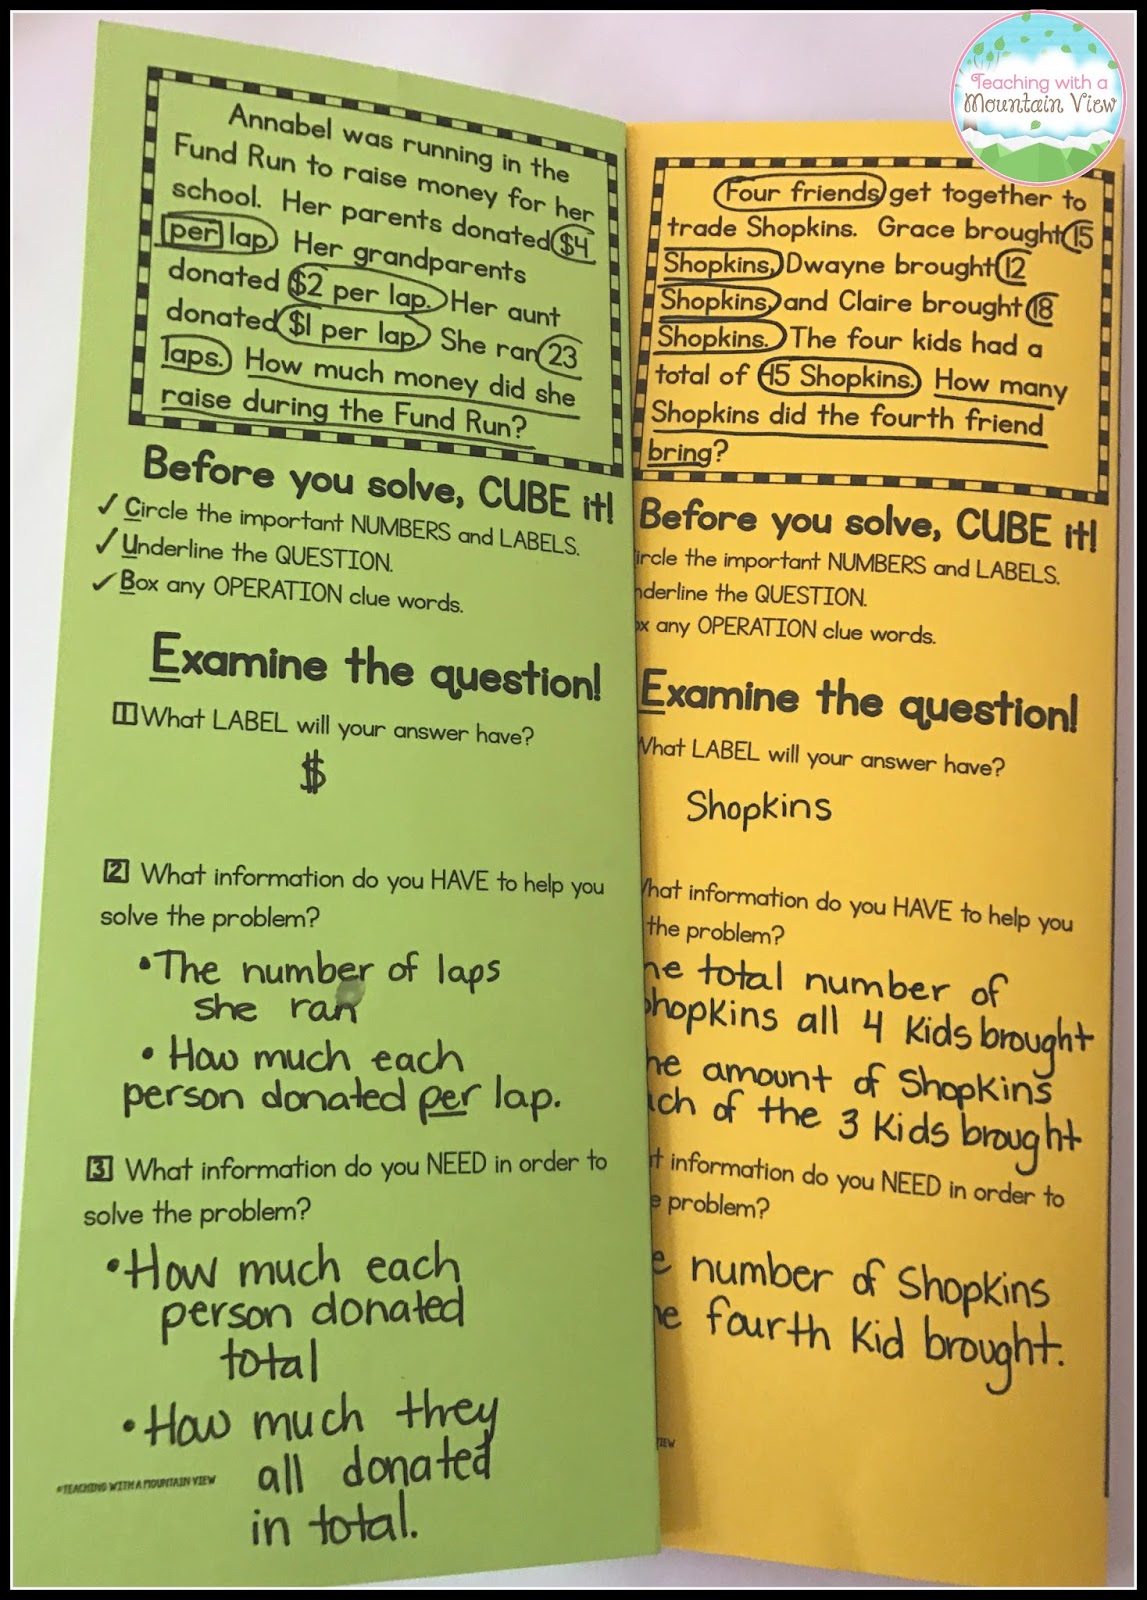 Teaching with a
Mountain View
Annabel was running in the
Fund Run to raise money for her
school. Her parents donated $4
per lap. Her grandparents
donated $2 per lap. Her aunt
donated $1 per lap. She ran 23
laps. How much money did she
raise during the Fund Run?
Before you solve, CUBE it!
✓ Circle the important NUMBERS and LABELS.
✓ Underline the QUESTION.
✓ Box any OPERATION clue words.
Examine the question!
1 What LABEL will your answer have?
$
2 What information do you HAVE to help you
solve the problem?
• The number of laps
she ran
• How much each
person donated per lap.
3 What information do you NEED in order to
solve the problem?
• How much each
person donated
total
• How much they
all donated
in total.
©TEACHING WITH A MOUNTAIN VIEW
Four friends get together to
trade Shopkins. Grace brought 15
Shopkins, Dwayne brought 12
Shopkins, and Claire brought 18
Shopkins. The four kids had a
total of Shopkins. How many
Shopkins did the fourth friend
bring?
Before you solve, CUBE it!
ircle the important NUMBERS and LABELS.
nderline the QUESTION.
ox any OPERATION clue words.
Examine the question!
What LABEL will your answer have?
Shopkins
What information do you HAVE to help you
the problem?
he total number of
Shopkins all 4 kids brought
he amount of Shopkins
ach of the 3 kids brought
t information do you NEED in order to
e problem?
e number of Shopkins
he fourth kid brought.
VIEW